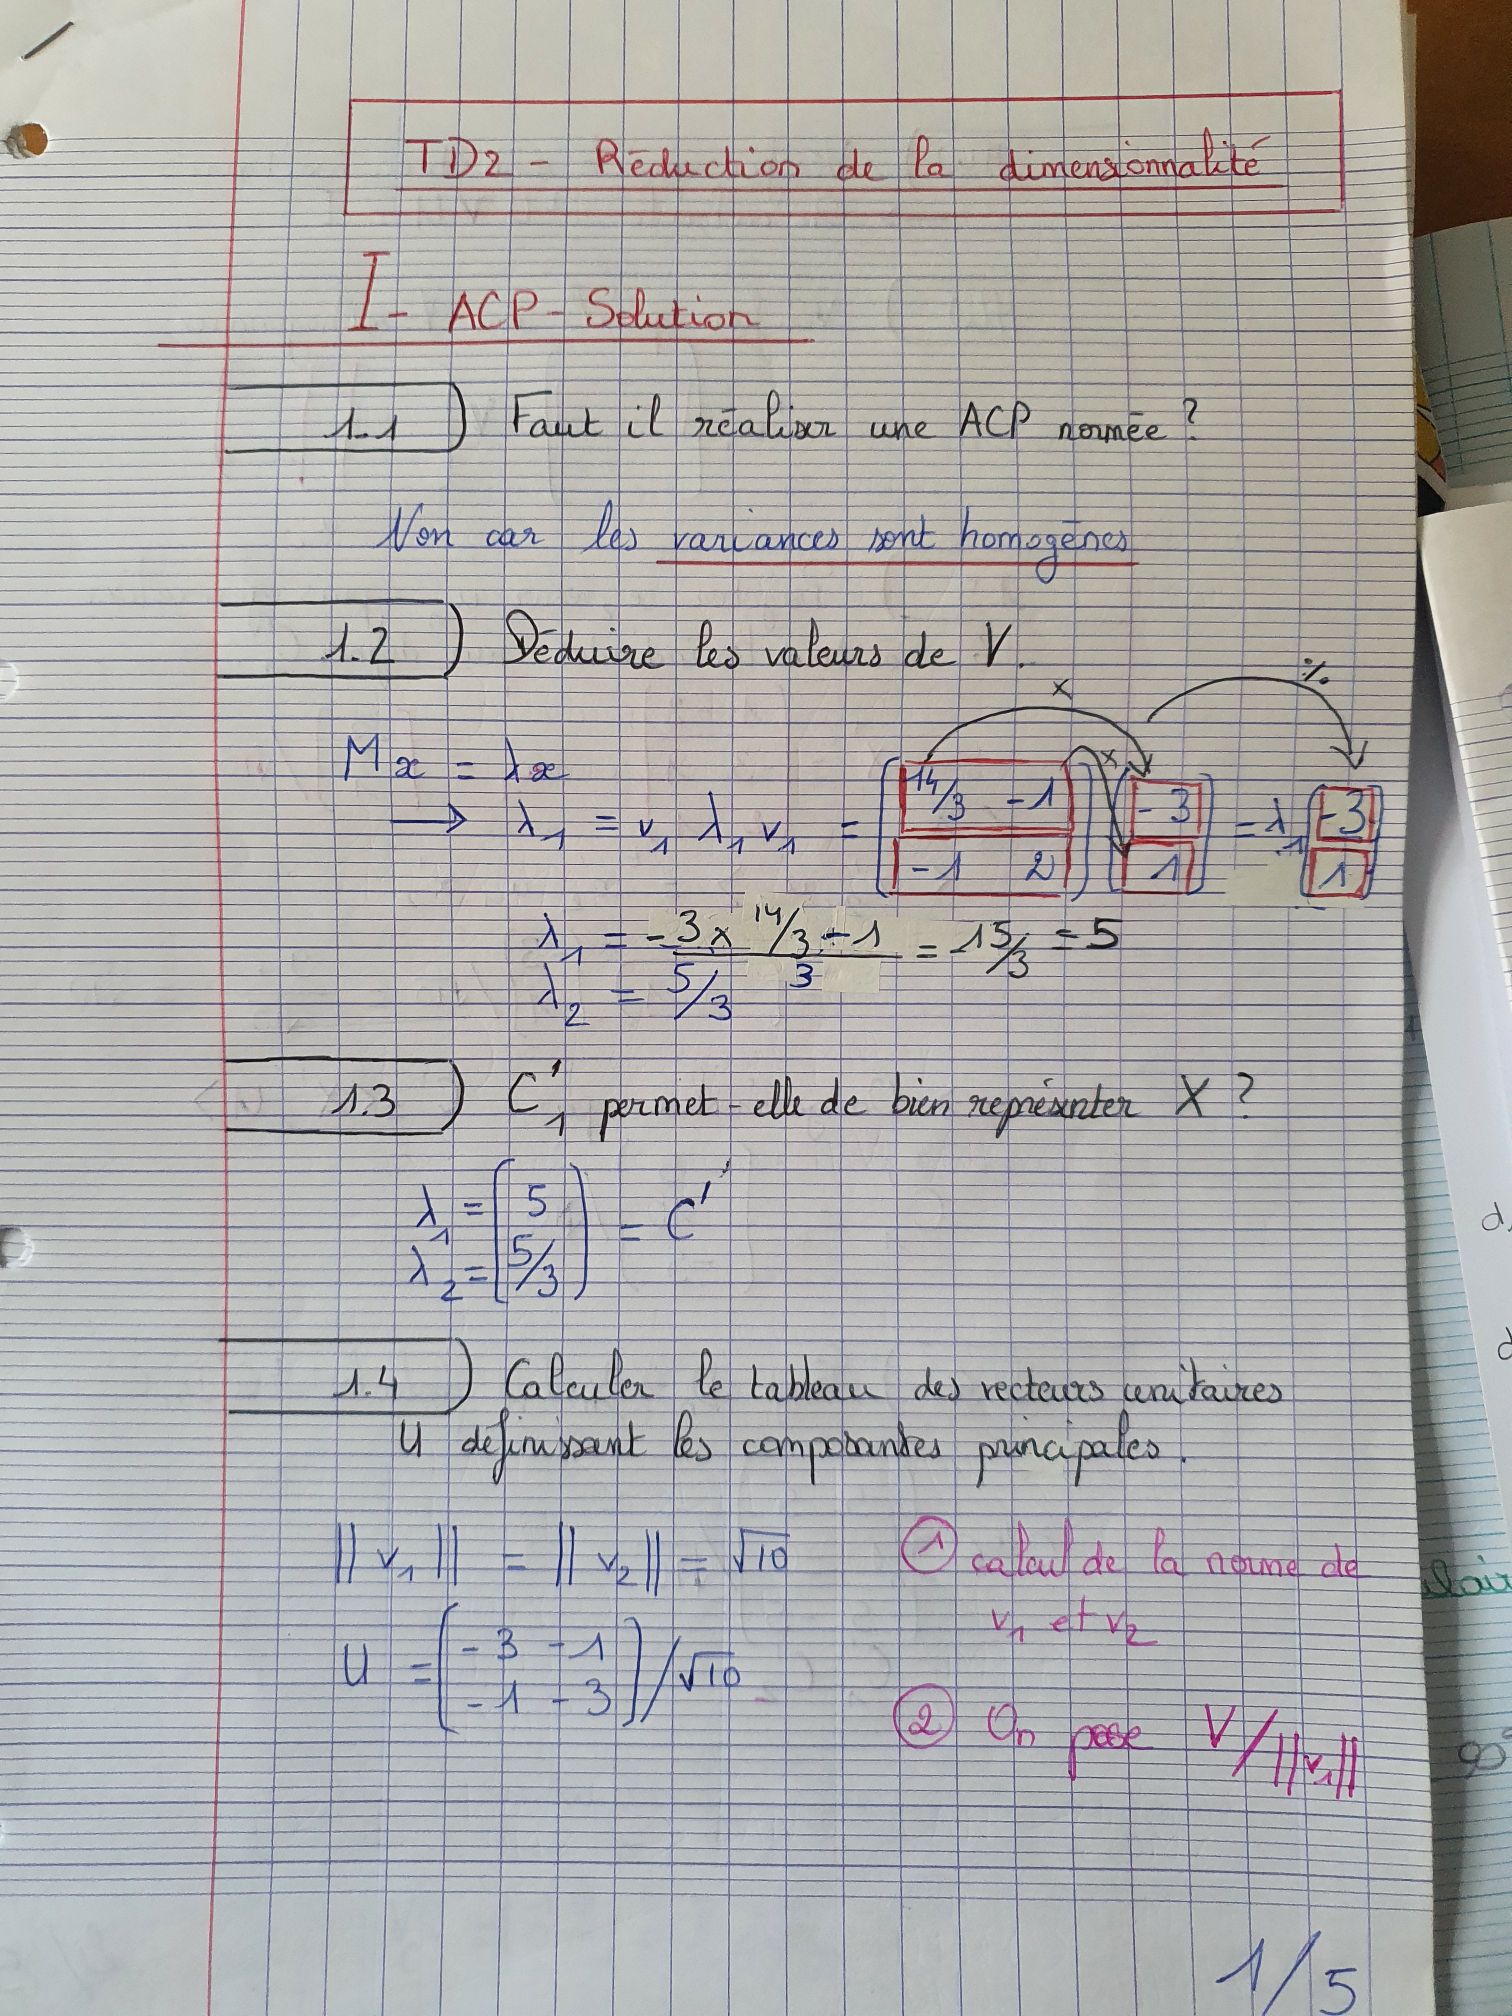 TD2 - Réduction de la dimensionnalité
I - ACP - Solution
1.1) Faut il réaliser une ACP normée ?
Non car les variances sont homogènes
1.2) Déduire les valeurs de V.
x %
M x = λ x
→ λ1 = v1 λ1 v1 = (14/3 -1 / -1 2) (-3 / 1) = λ1 (-3 / 1)
x
λ1 = -3 x 14/3 - 1 / 3 = 15/3 = 5
λ2 = 5/3
1.3) C'1 permet-elle de bien représenter X ?
λ1 = (5
λ2 = 5/3) = C'
1.4) Calculer le tableau des vecteurs unitaires
U définissant les composantes principales.
|| v1 || = || v2 || = √10
① calcul de la norme de
v1 et v2
U = (-3 -1
-1 -3) / √10
② On pose V/||v1||
1/5
90°